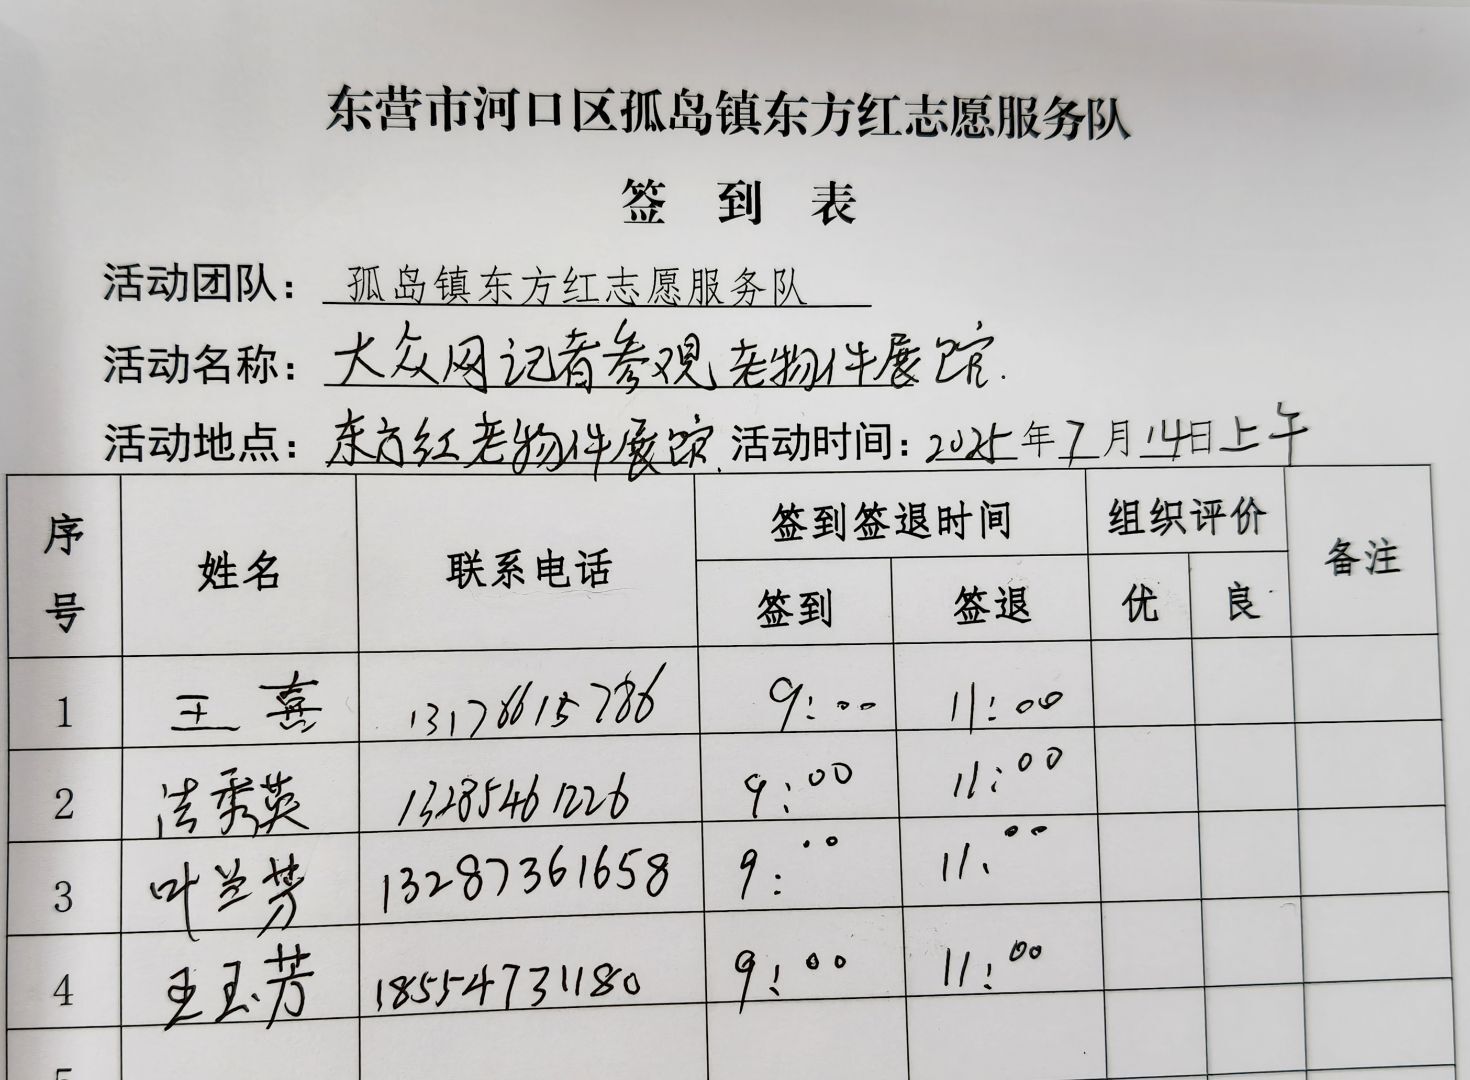 东营市河口区孤岛镇东方红志愿服务队
签 到 表
活动团队：孤岛镇东方红志愿服务队
活动名称：大众网记者参观老物件展馆.
活动地点：东方红老物件展馆. 活动时间：2025年7月14日上午
序号 姓名 联系电话 签到签退时间 组织评价 备注
签到 签退 优 良
1 王喜 13176615786 9:00 11:00
2 法秀英 13285461226 9:00 11:00
3 叶兰芳 13287361658 9:00 11:00
4 王玉芳 18554731180 9:00 11:00
5